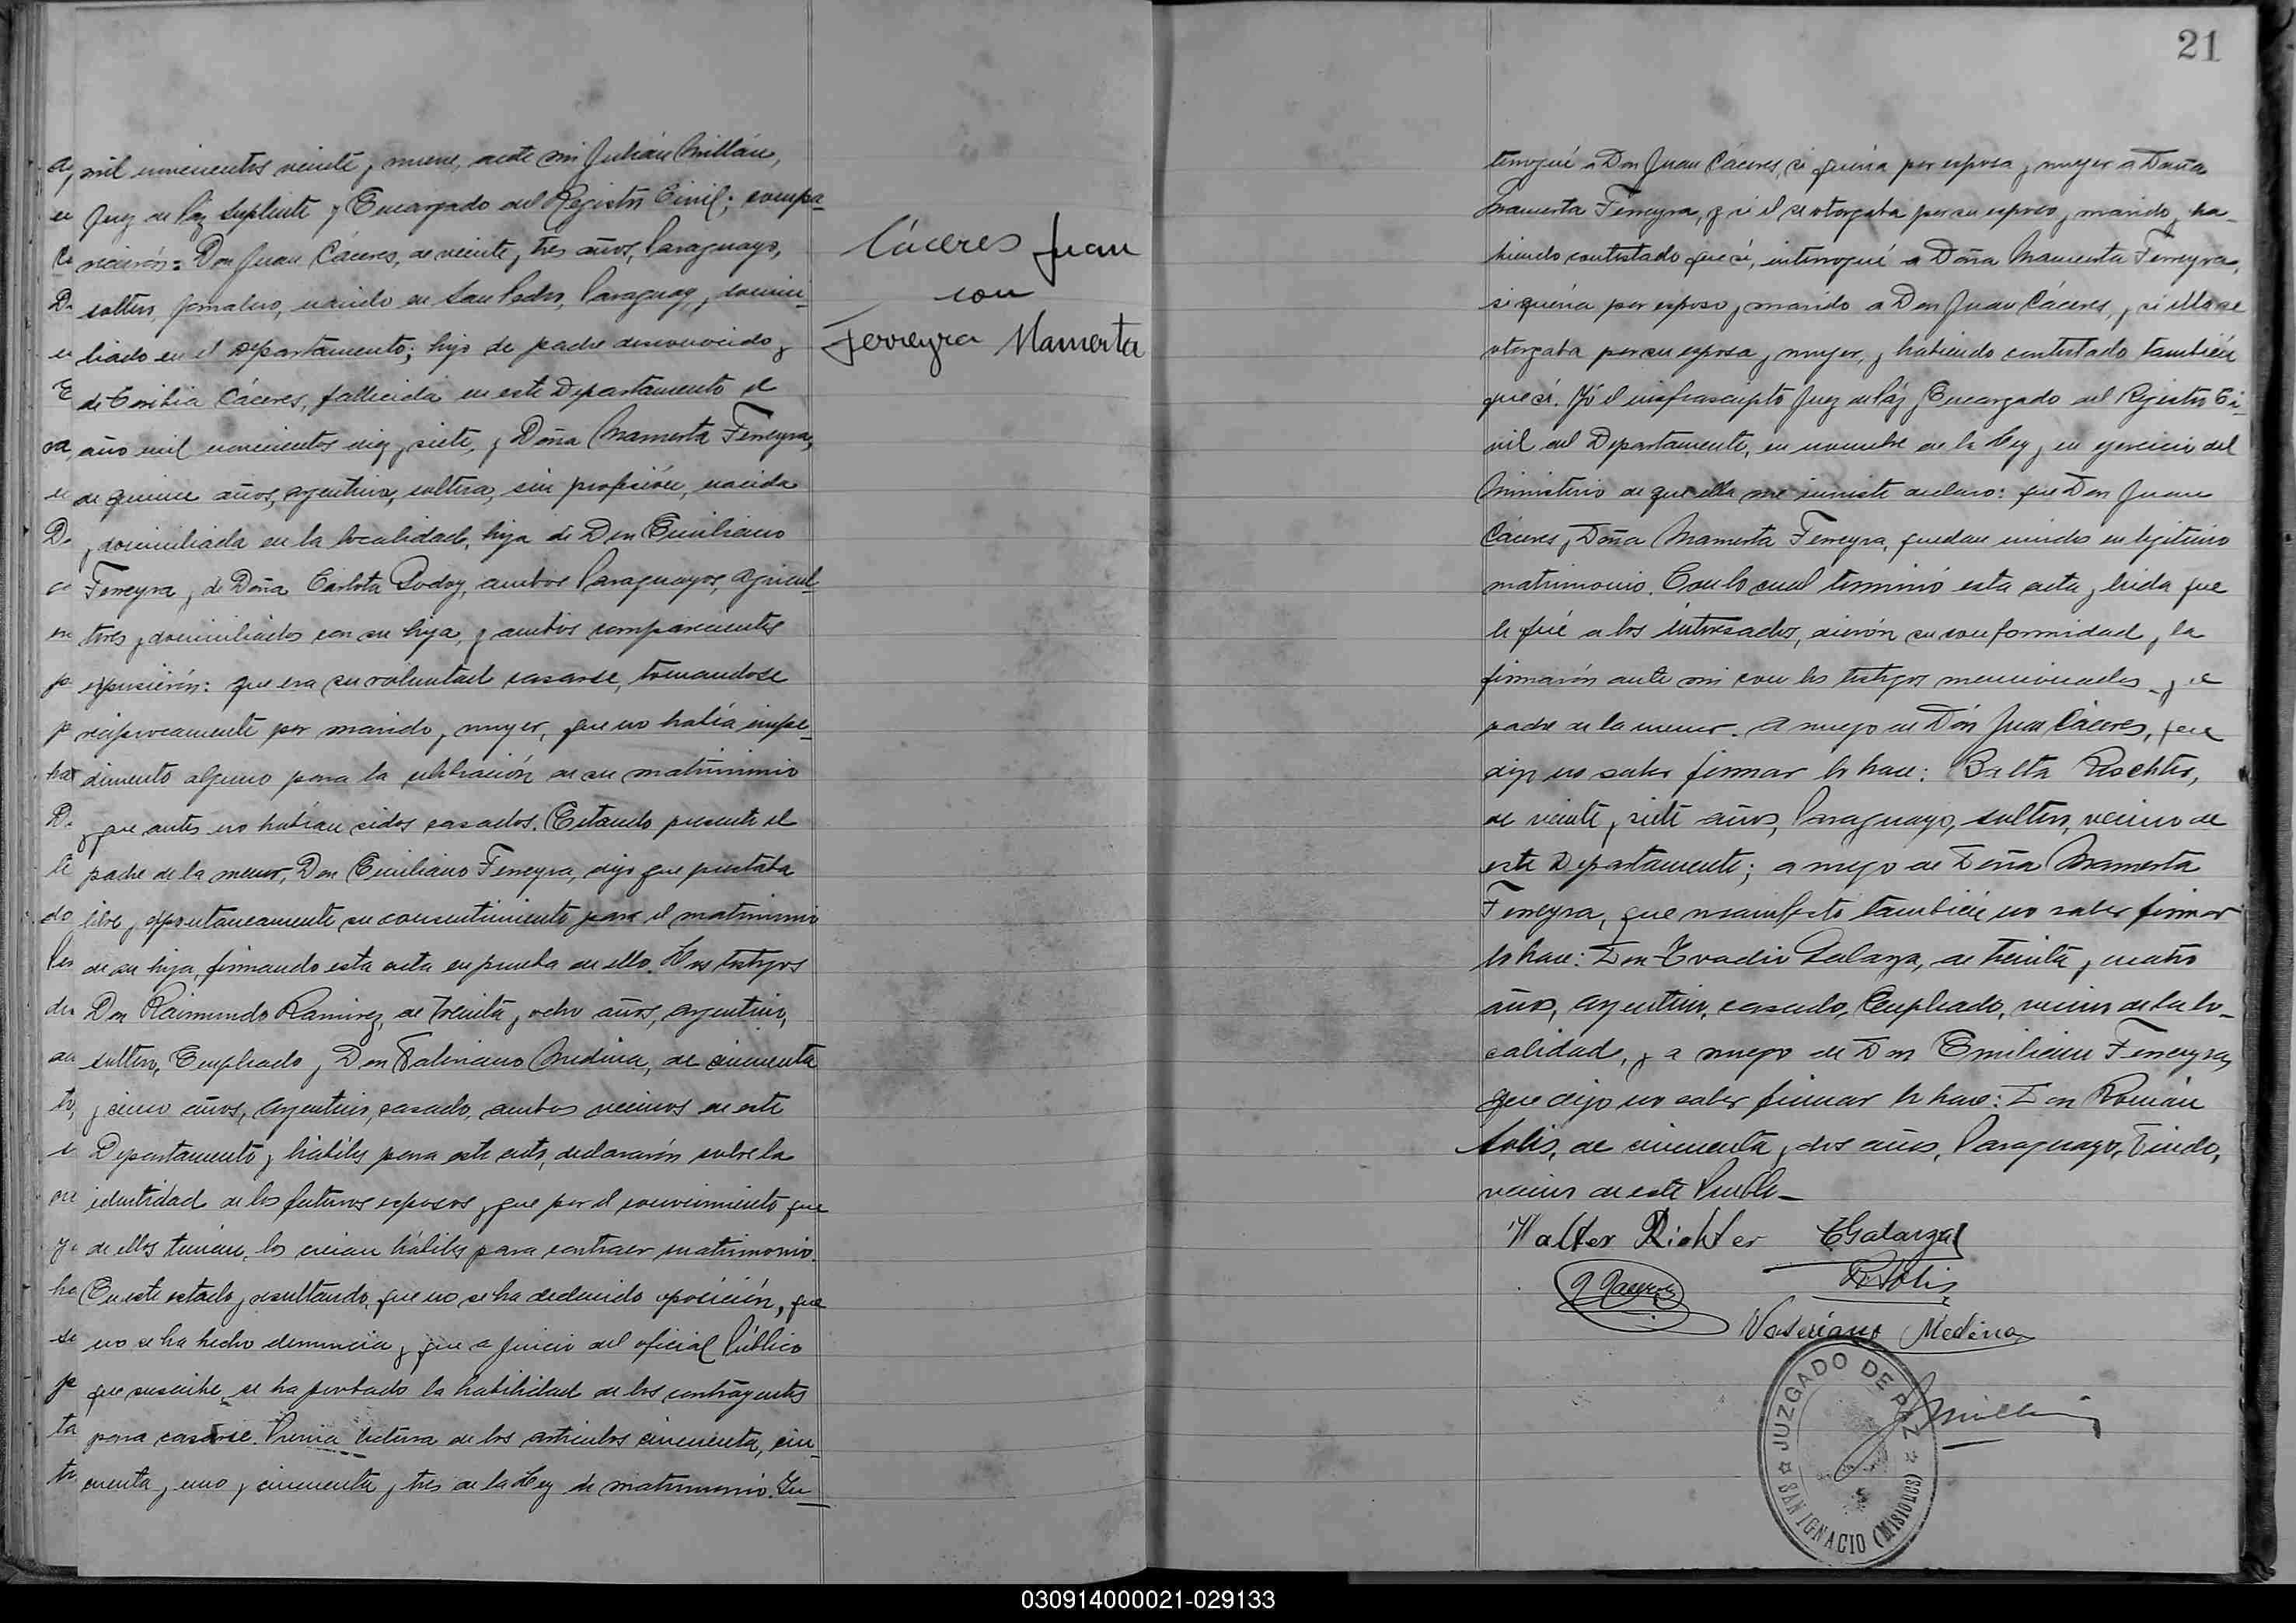 mil novecientos veinte y nueve, ante mi Julián Millán,
Juez de Paz Suplente y Encargado del Registro Civil; compa-
recieron: Don Juan Cáceres, de veinte y tres años, Paraguayo,
soltero, jornalero, nacido en San Pedro, Paraguay, y domici-
liado en el Departamento; hijo de padre desconocido y
de Toribia Cáceres, fallecida en este Departamento el
año mil novecientos diez y siete, y Doña Mamerta Ferreyra,
de quince años, argentina, soltera, sin profesión, nacida
y domiciliada en la localidad, hija de Don Emiliano
Ferreyra y de Doña Carlota Godoy, ambos Paraguayos, Agricul-
tores y domiciliados con su hija, y ambos comparecientes
expusierón: que era su voluntad casarse, tomandose
reciprocamente por marido y mujer, que no había impe-
dimento alguno para la celebración de su matrimonio
y que antes no habían sidos casados. Estando presente el
padre de la menor, Don Emiliano Ferreyra, dijo que prestaba
libre y espontaneamente su consentimiento para el matrimonio
de su hija, firmando esta acta en prueba de ello. Los testigos
Don Raimundo Ramirez, de treinta y ocho años, argentino,
soltero, Empleado y Don Valeriano Medina, de cincuenta
y cinco años, argentino, casado, ambos vecinos de este
Departamento y hábiles para este acto, declararón sobre la
identidad de los futuros esposos y que por el conocimiento que
de ellos tenian, los creian hábiles para contraer matrimonio.
En este estado y resultando, que no se ha deducido oposición, que
no se ha hecho denuncia y que a juicio del oficial Público
que suscribe se ha probado la habilidad de los contrayentes
para casarse. Previa lectura de los articulos cincuenta, cin-
cuenta y uno y cincuenta y tres de la Ley de matrimonio. In-
Cáceres Juan
con
Ferreyra Mamerta
21
terrogué a Don Juan Cáceres, si quería por esposa y mujer a Doña
Mamerta Ferreyra, y si el se otorgaba por su esposo y marido y ha-
biendo contestado que sí, interrogué a Doña Mamerta Ferreyra,
si quería por esposo y marido a Don Juan Cáceres, y si ella se
otorgaba por su esposa y mujer, y habiendo contestado también
que sí. Yo el infrascripto Juez de Páz y Encargado del Registro Ci-
vil del Departamento, en nombre de la Ley y en ejercicio del
Ministerio de que ella me inviste declaro: que Don Juan
Cáceres y Doña Mamerta Ferreyra, quedan unidos en legitimo
matrimonio. Con lo cual terminó esta acta y leida que
le fué a los interesados, dierón su conformidad y la
firmarón ante mi con los testigos mencionados y el
padre de la menor. A ruego de Dón Juan Cáceres, que
dijo no saber firmar lo hace: Balta Rischter,
de veinte y siete años, Paraguayo, soltero, vecino de
este Departamento; a ruego de Doña Mamerta
Ferreyra, que manifesto también no saber firmar
lo hace: Don Evadio Galarza, de treinta y cuatro
años, argentino, casado, Empleado, vecino de la lo-
calidad, y a ruego de Don Emiliano Ferreyra,
que dijo no saber firmar lo hace: Don Román
Solis, de cincuenta y dos años, Paraguayo, Viudo,
vecino de este Pueblo-
Walter Richter EGalarza
R. Solis
Valeriano Medina
JUZGADO DE PAZ
SAN IGNACIO (MISIONES)
JMillán
030914000021-029133